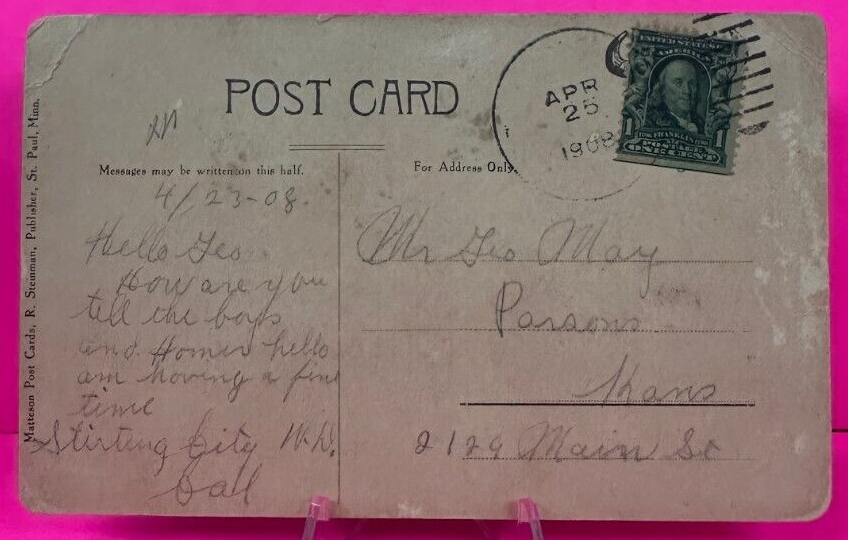 POST CARD
APR
25
1908
UNITED STATES
AMERICA
1 1
FRANKLIN
POSTAGE
ONE CENT
Messages may be written on this half.
For Address Only.
4/23-08.
Hello Geo
How are you
tell the boys
and Homer hello
am having a fine
time
Stirling City
Cal
Mr Geo May
Parsons
Kans
2129 Main St
Matteson Post Cards, R. Steinman, Publisher, St. Paul, Minn.